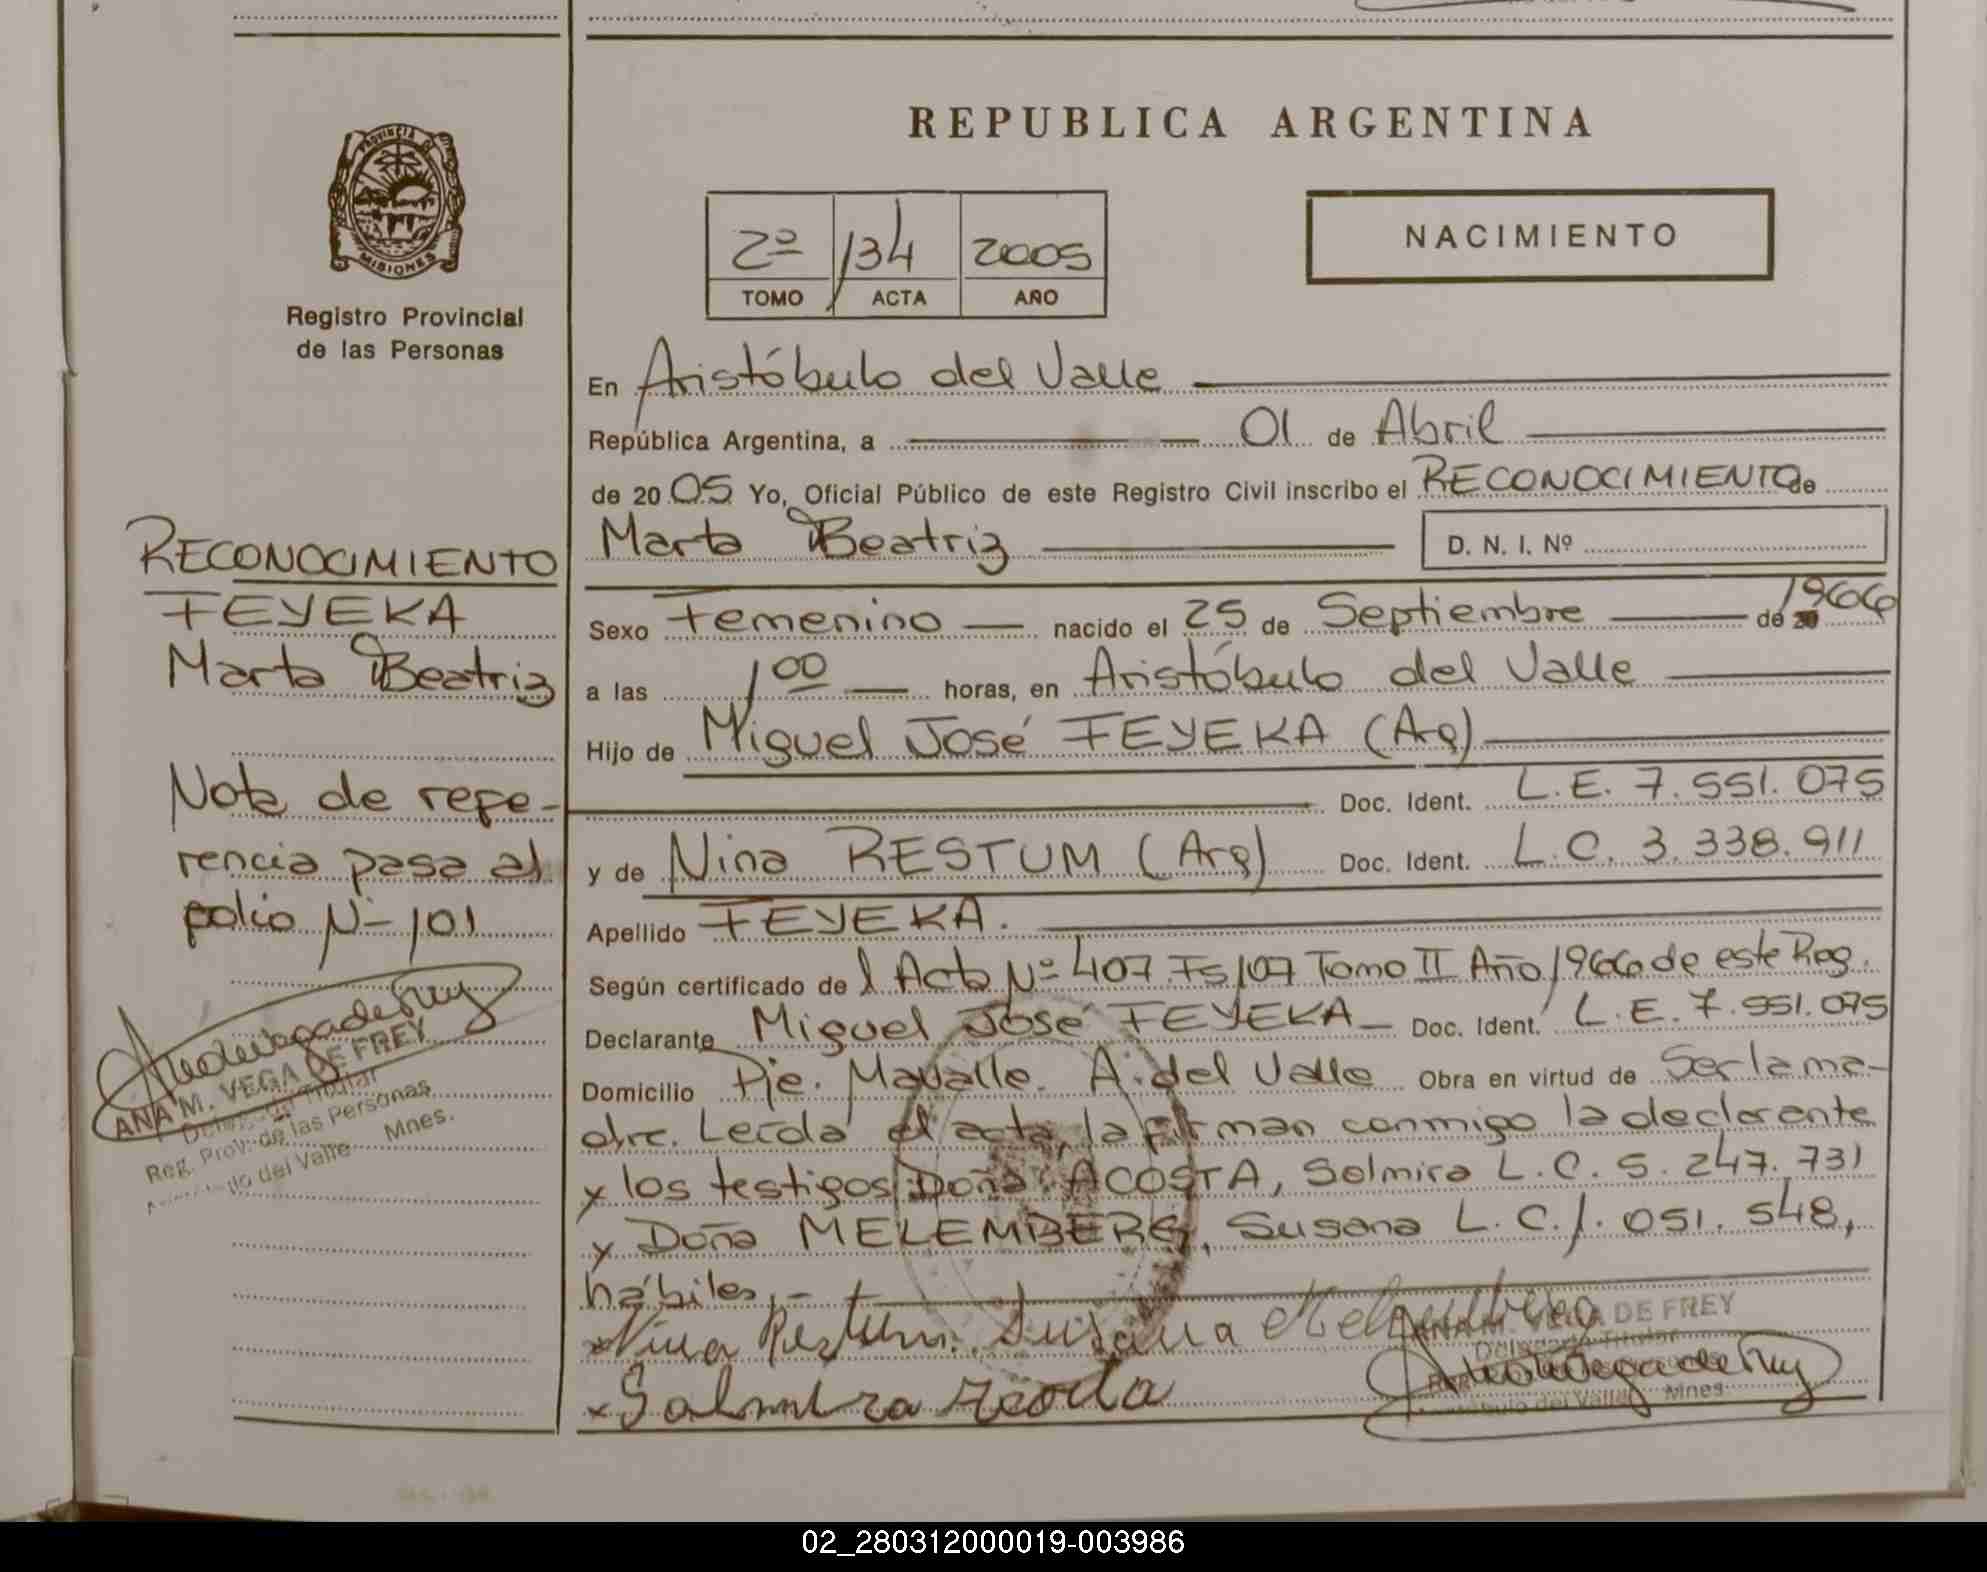 REPUBLICA ARGENTINA
PROVINCIA DE
MISIONES
Registro Provincial
de las Personas
2º 134 2005
TOMO ACTA AÑO
NACIMIENTO
En Aristóbulo del Valle
República Argentina, a 01 de Abril
de 2005 Yo, Oficial Público de este Registro Civil inscribo el RECONOCIMIENTO de
Marta Beatriz D. N. I. Nº
Sexo Femenino nacido el 25 de Septiembre de 1966
a las 1,00 horas, en Aristóbulo del Valle
Hijo de Miguel José FEYEKA (Arg)
Doc. Ident. L.E. 7.551.075
y de Nina RESTUM (Arg) Doc. Ident. L.C. 3.338.911
Apellido FEYEKA.
Según certificado de l Acta Nº 407 Fs 107 Tomo II Año 1966 de este Reg.
Declarante Miguel José FEYEKA Doc. Ident. L.E. 7.551.075
Domicilio Pje. Mavalle. A. del Valle Obra en virtud de Ser la ma-
dre. Leída el acta, la firman conmigo la declarante
y los testigos Doña ACOSTA, Selmira L.C. 5.247.731
y Doña MELEMBERG, Susana L.C. 1.051.548,
hábiles,-
Nina Restum. Susana
RECONOCIMIENTO
FEYEKA
Marta Beatriz
Nota de refe-
rencia pasa al
folio Nº 101
ANA M. VEGA DE FREY
Delegada Titular
Reg. Prov. de las Personas
del Valle Mnes.
ANA M. VEGA DE FREY
Delegada Titular
del Valle Mnes
02_280312000019-003986